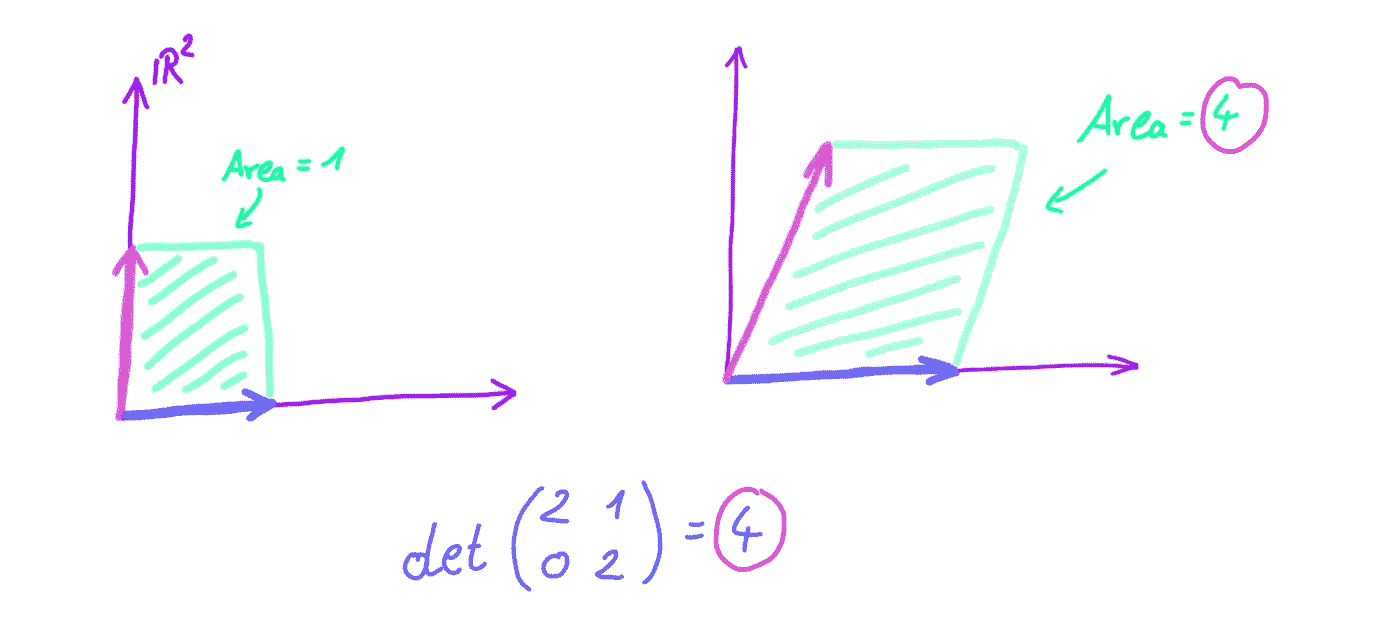 ℝ²
Area = 1
Area = 4
det ( 2 1
0 2 ) = 4